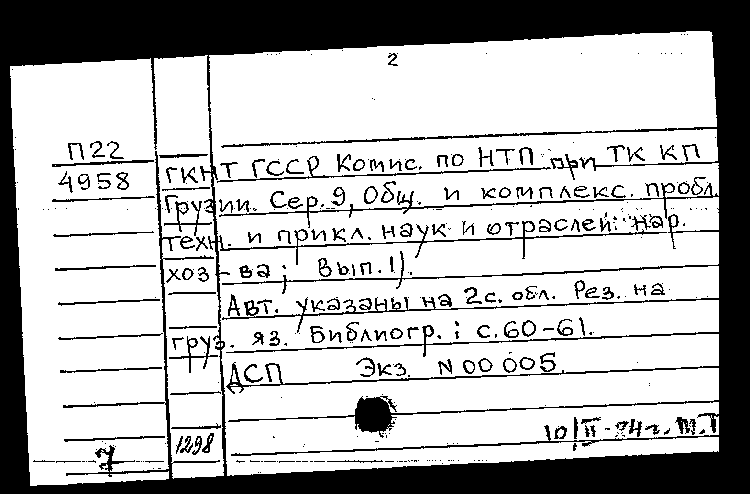 2
П22
4958
ГКНТ ГССР Комис. по НТП при ТК КП
Грузии. Сер. 9, Общ. и комплекс. пробл.
техн. и прикл. наук и отраслей нар.
хоз-ва; Вып. 1).
Авт. указаны на 2 с. обл. Рез. на
груз. яз. Библиогр.: с. 60-61.
ДСП Экз. N00005.
1298
10/II-84г. М.Т